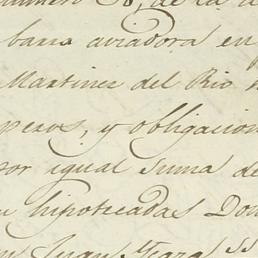 numero 8, de la
barra aviadora en
Martinez del Rio
pesos, y obligacion
por igual suma de
hipotecadas Don
Juan